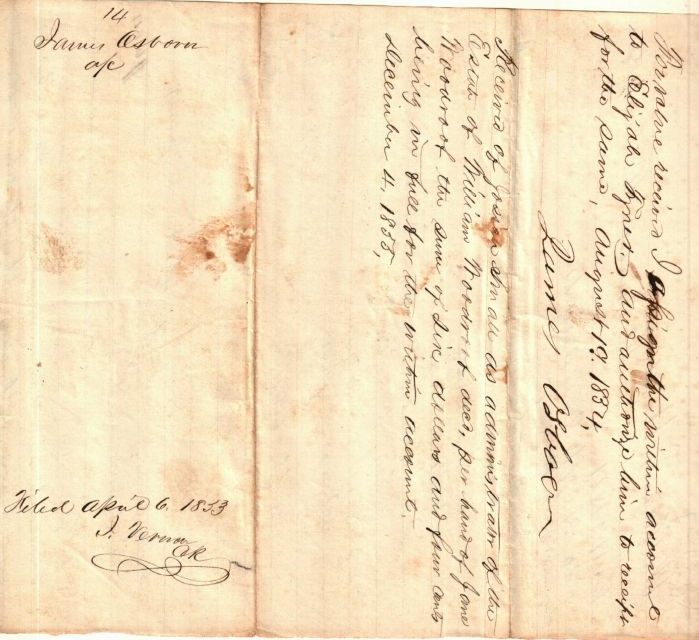 14
James Osborn
a/c
Filed April 6. 1853
J. Vernon
Clk
For value received I assign the within account
to Elijah and authorize him to receipt
for the same, August 19. 1854,
James Osborn
Received of Josiah Small as administrator of the
Estate of William Woodroof decd, per hand of Jane
Woodroof the sum of Six dollars and four cents
being in full for the within account.
December 4, 1855,